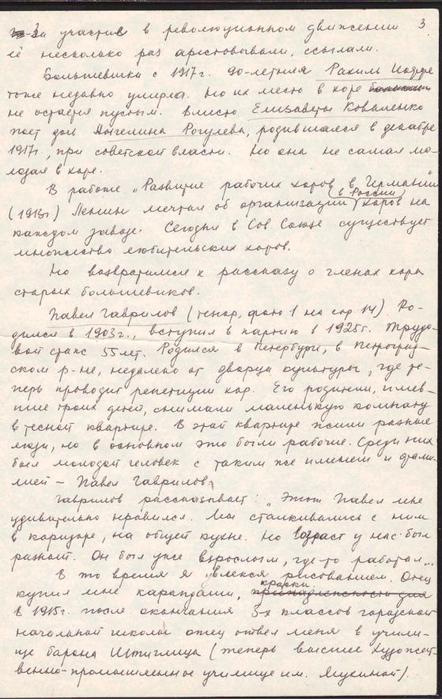 3
За участие в революционном движении
её несколько раз арестовывали, ссылали.
Большевичка с 1917г. 90-летняя Рахиль
тоже недавно умерла. Но их место в хоре
не остаётся пустым. Вместо Елизаветы Коваленко
поёт дол Ангелина Рогулева, родившаяся в декабре
1917г, при советской власти. Но она не самая мо-
лодая в хоре.
В работе „Развитие рабочих хоров в Германии"
(1913г) Ленин мечтал об организации (в России) хоров на
каждом заводе. Сегодня в Сов Союзе существует
множество любительских хоров.
Но возвратимся к рассказу о членах хора
старых большевиков.
Павел Гаврилов (тенор, фото 1 на стр 14). Ро-
дился в 1903г., вступил в партию в 1925г. Трудо-
вой стаж 55 лет. Родился в Петербурге, в Петроград-
ском р-не, недалеко от дворца культуры, где те-
перь проводит репетиции хор. Его родители, имев-
шие троих детей, снимали маленькую комнату
в тесной квартире. В этой квартире жили разные
люди, но в основном это были рабочие. Среди них
был молодой человек с таким же именем и фами-
лией – Павел Гаврилов.
Гаврилов рассказывает: „Этот Павел мне
удивительно нравился. Мы сталкивались с ним
в коридоре, на общей кухне. Но возраст у нас был
разный. Он был уже взрослым, где-то работал...
В то время я увлекся рисованием. Отец
купил мне карандаши, краски
в 1915г. после окончания 3-х классов городской
начальной школы отец отвел меня в учили-
ще барона Штиглица (теперь высшее художест-
венно-промышленное училище им. Мухиной).